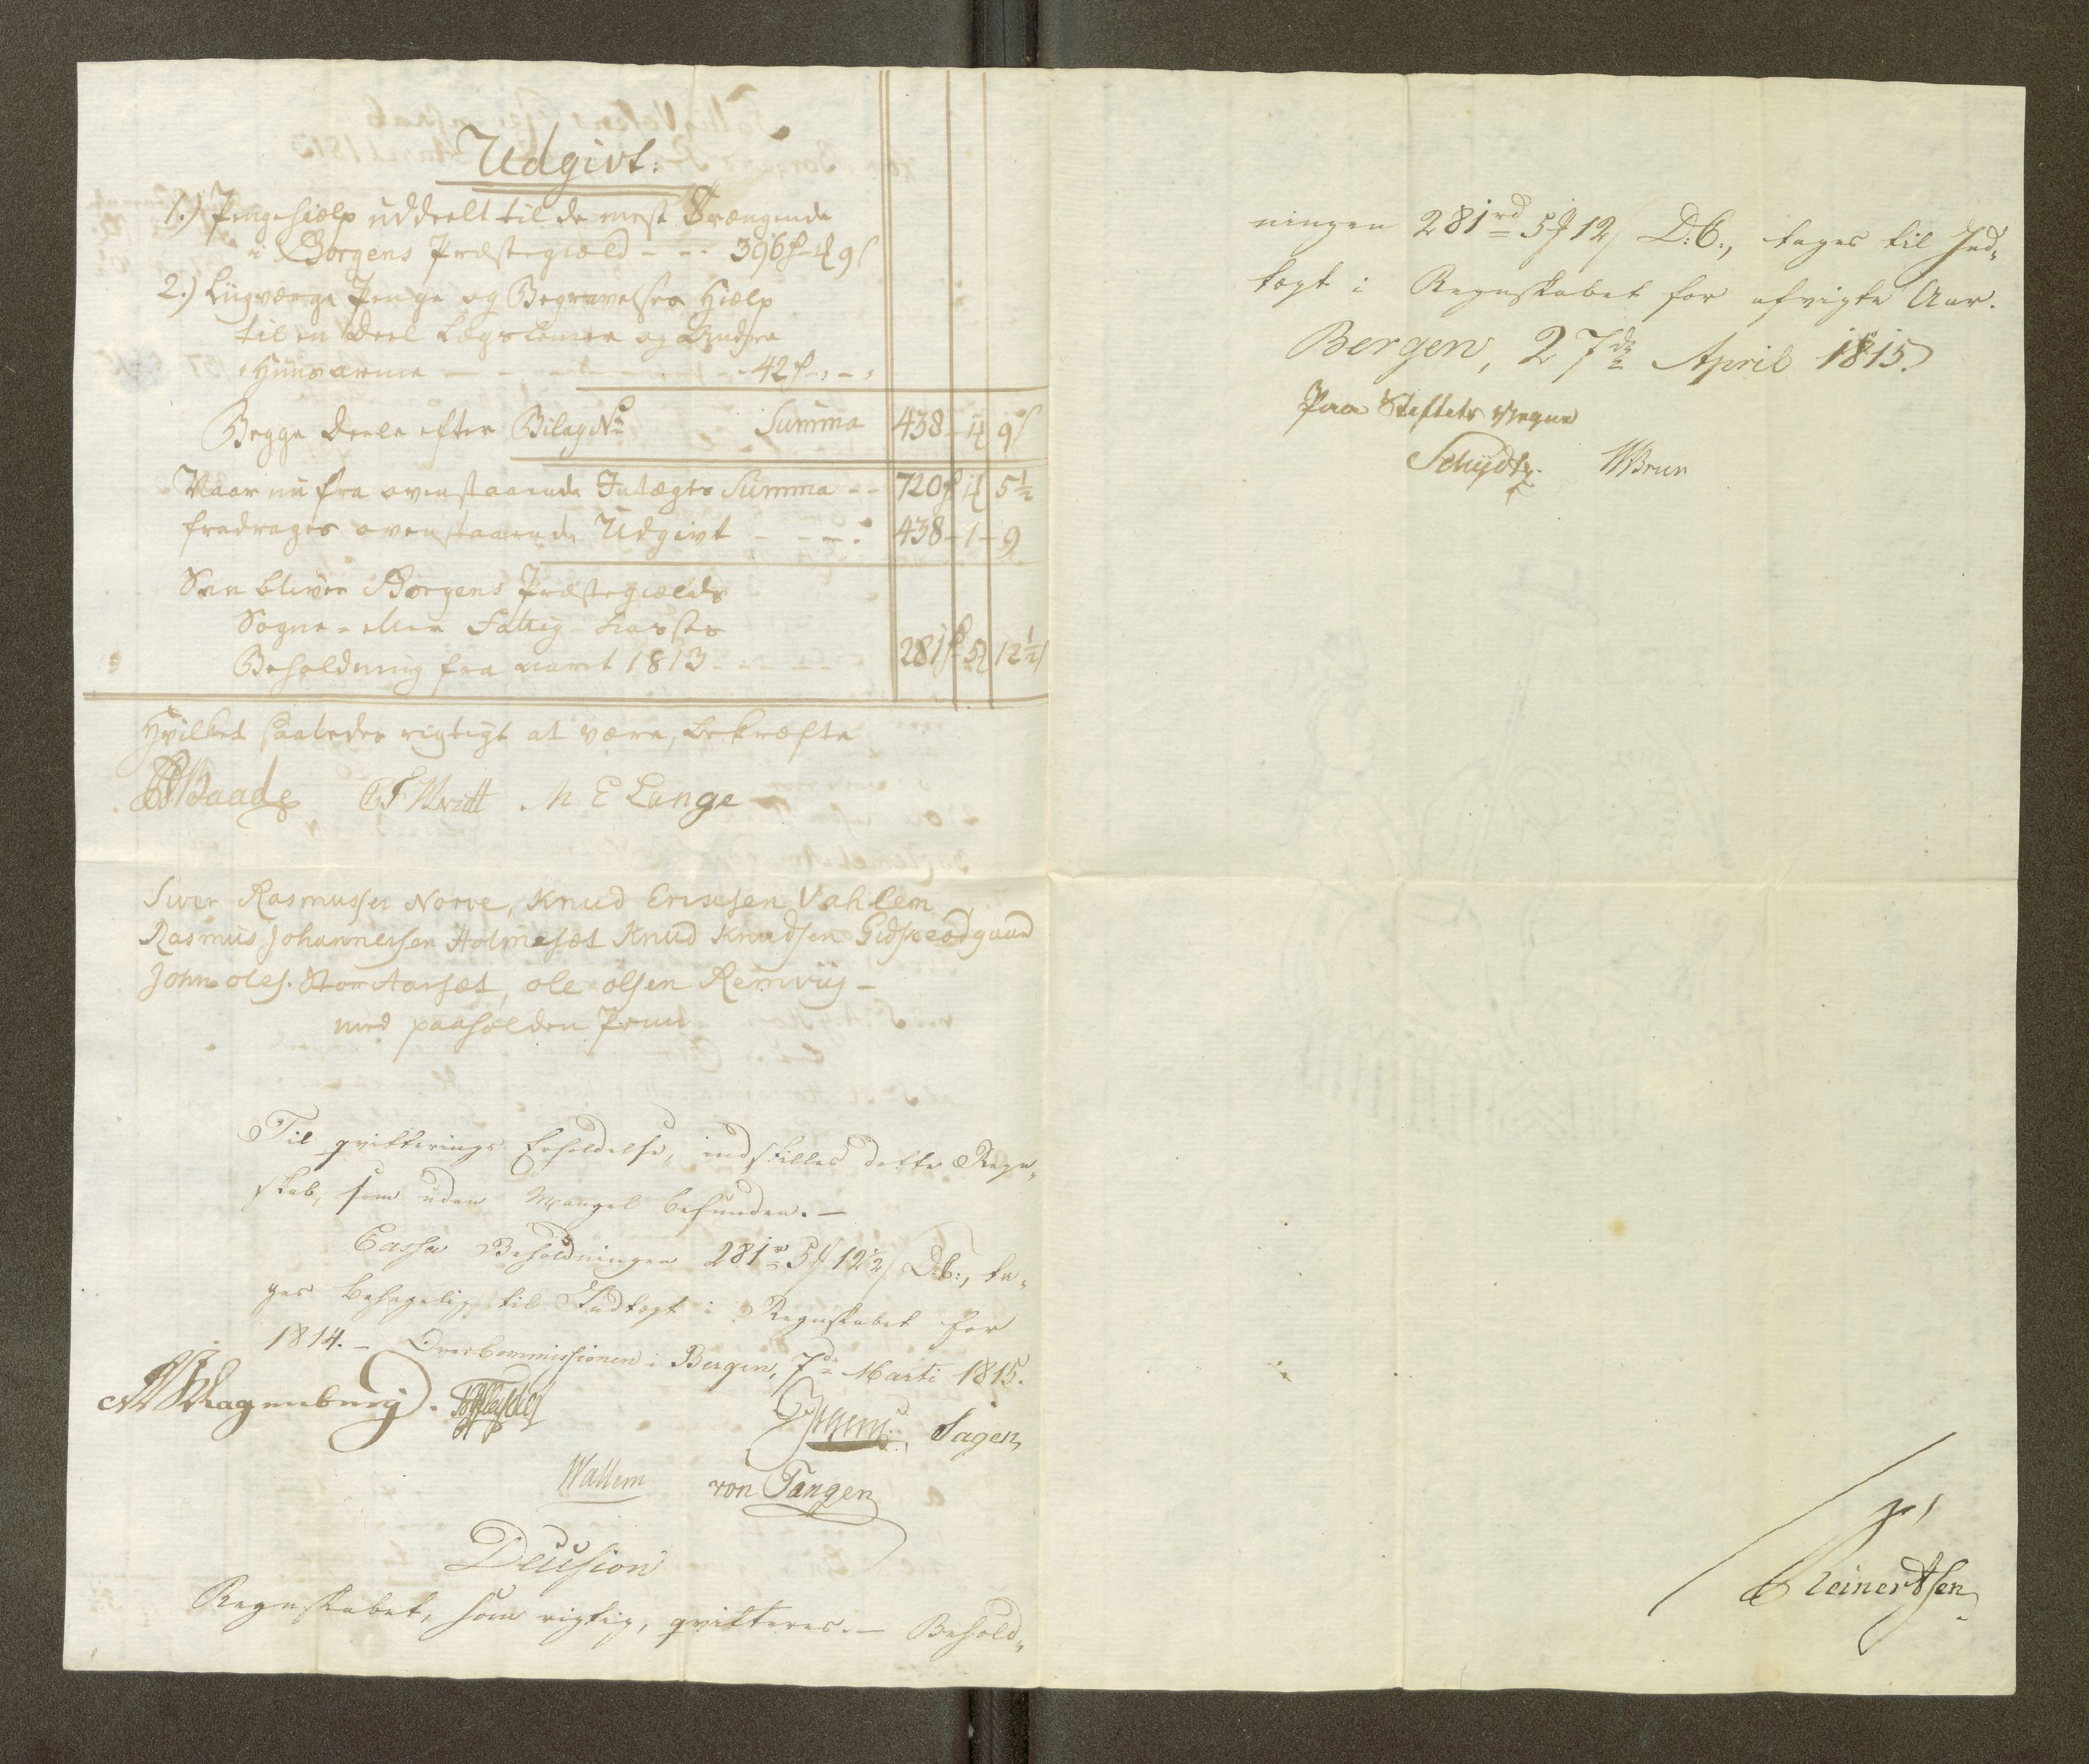 Udgivt:
1.) Pengehielp uddeelt til de mest Trængende
i Borgens Præstegield - - - 396 - 4 9 s
2.) Liigværge Penge og Begravelses Hielp
til en Deel Lægslemer og Andre
Huusarme - - - 42 - , - ,
Begge Deele efter Bilag No Summa 438 - 4 9 s
Naar nu fra ovenstaaende Intægts Summa - - 720 4 5 1/2
fradrages ovenstaaende Udgivt - - - : 438 - 1 - 9
Saa bliver Borgens Præstegields
Sogne- eller Fattig-Casses
Beholdning fra aaret 1813 - - - - 281 5 12 1/2 s
Hvilket saaledes rigtigt at være, bekræfte
Baade M E Lange
Siver Rasmussen Norve, Knud Ericksen Vahlem
Rasmus Johannessen Holmesæt Knud Knudsen Gidskeødgaard
John Oles. Stor Aarsæt, ole olsen Remvüg -
med paaholden Penn
Til qvitterings Erholdelse, indstilles dette Regn„
skab, som uden Mangel befunden. -
Cassa Beholdningen 281 r 5 12 1/2 s D:C:, ta„
ges behagelig til Indtægt i Regnskabet for
1814. - OverCommissionen i Bergen, 7de Marti 1815.
Magenburg. Irgens. Sagen,
Wallem von Tangen
Decision
Regnskabet, som rigtig, qvitteres. - Behold„
ningen 281 rd 5 12 s D:C:, tages til Ind„
tægt i Regnskabet for afvigte Aar.
Bergen, 27de April 1815.
Paa Stiftets Vegne
Schydtz. Brun
Reinertsen